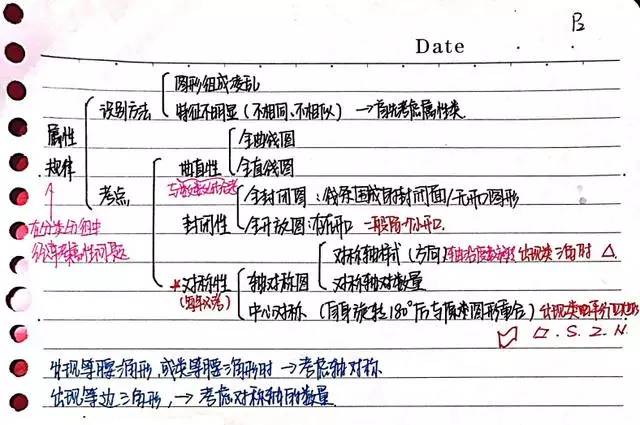 B
Date
图形组成凌乱
识别方法
特征不明显（不相同、不相似）→首先考虑属性类
属性
规律
全曲线图
曲直性
全直线图
考点
全封闭图：线条围成的封闭面/无开口图形
封闭性
全开放图：有开口 一般留个小开口
在分类分组中
对称轴样式（方向） 出现类三角时 △
轴对称图
对称轴对数量
*对称性
中心对称（自身旋转180°后与原来图形重合）出现类
S.Z.N.
出现等腰三角形，或类等腰三角形时→考虑轴对称
出现等边三角形，→考虑对称轴的数量